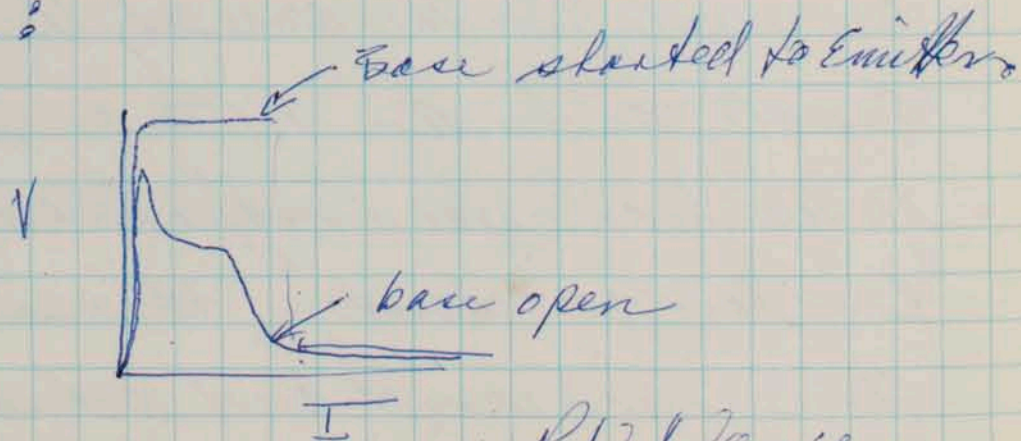 Base shorted to Emitter
V
base open
I